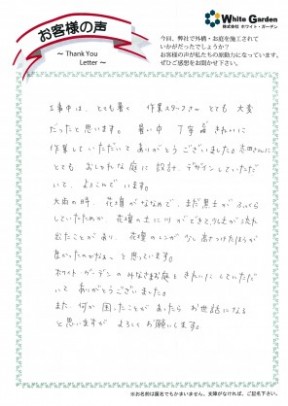 お客様の声
～ Thank You
Letter ～
White Garden
株式会社 ホワイト・ガーデン
今回、弊社で外構・お庭を施工されて
いかがだったでしょうか？
お客様の声が私たちの原動力になっています。
ぜひご感想をお聞かせ下さい。
工事中は、とても暑く 作業スタッフさん とても 大変
だったと思います。 暑い中 丁寧 きれいに
作業していただいて ありがとうございました。
とても おしゃれな庭に 設計、デザインしていただ
いて、よろこんでいます。
大雨の時 花壇がななめで、まだ黒土が ふっくら
していたためか 花壇の土に川ができて少し土が流れ
出たことがあり、花壇のレンガが 少し高さあったほうが
良かったのかなぁ、と思っています。
ホワイトガーデンの みなさまお庭を きれいに していただ
いて ありがとうございました。
また、何か 困ったことが ありましたら お世話になる
と思いますが よろしくお願いします。
※お名前は匿名でもかまいません。支障がなければ、ご記名下さい。